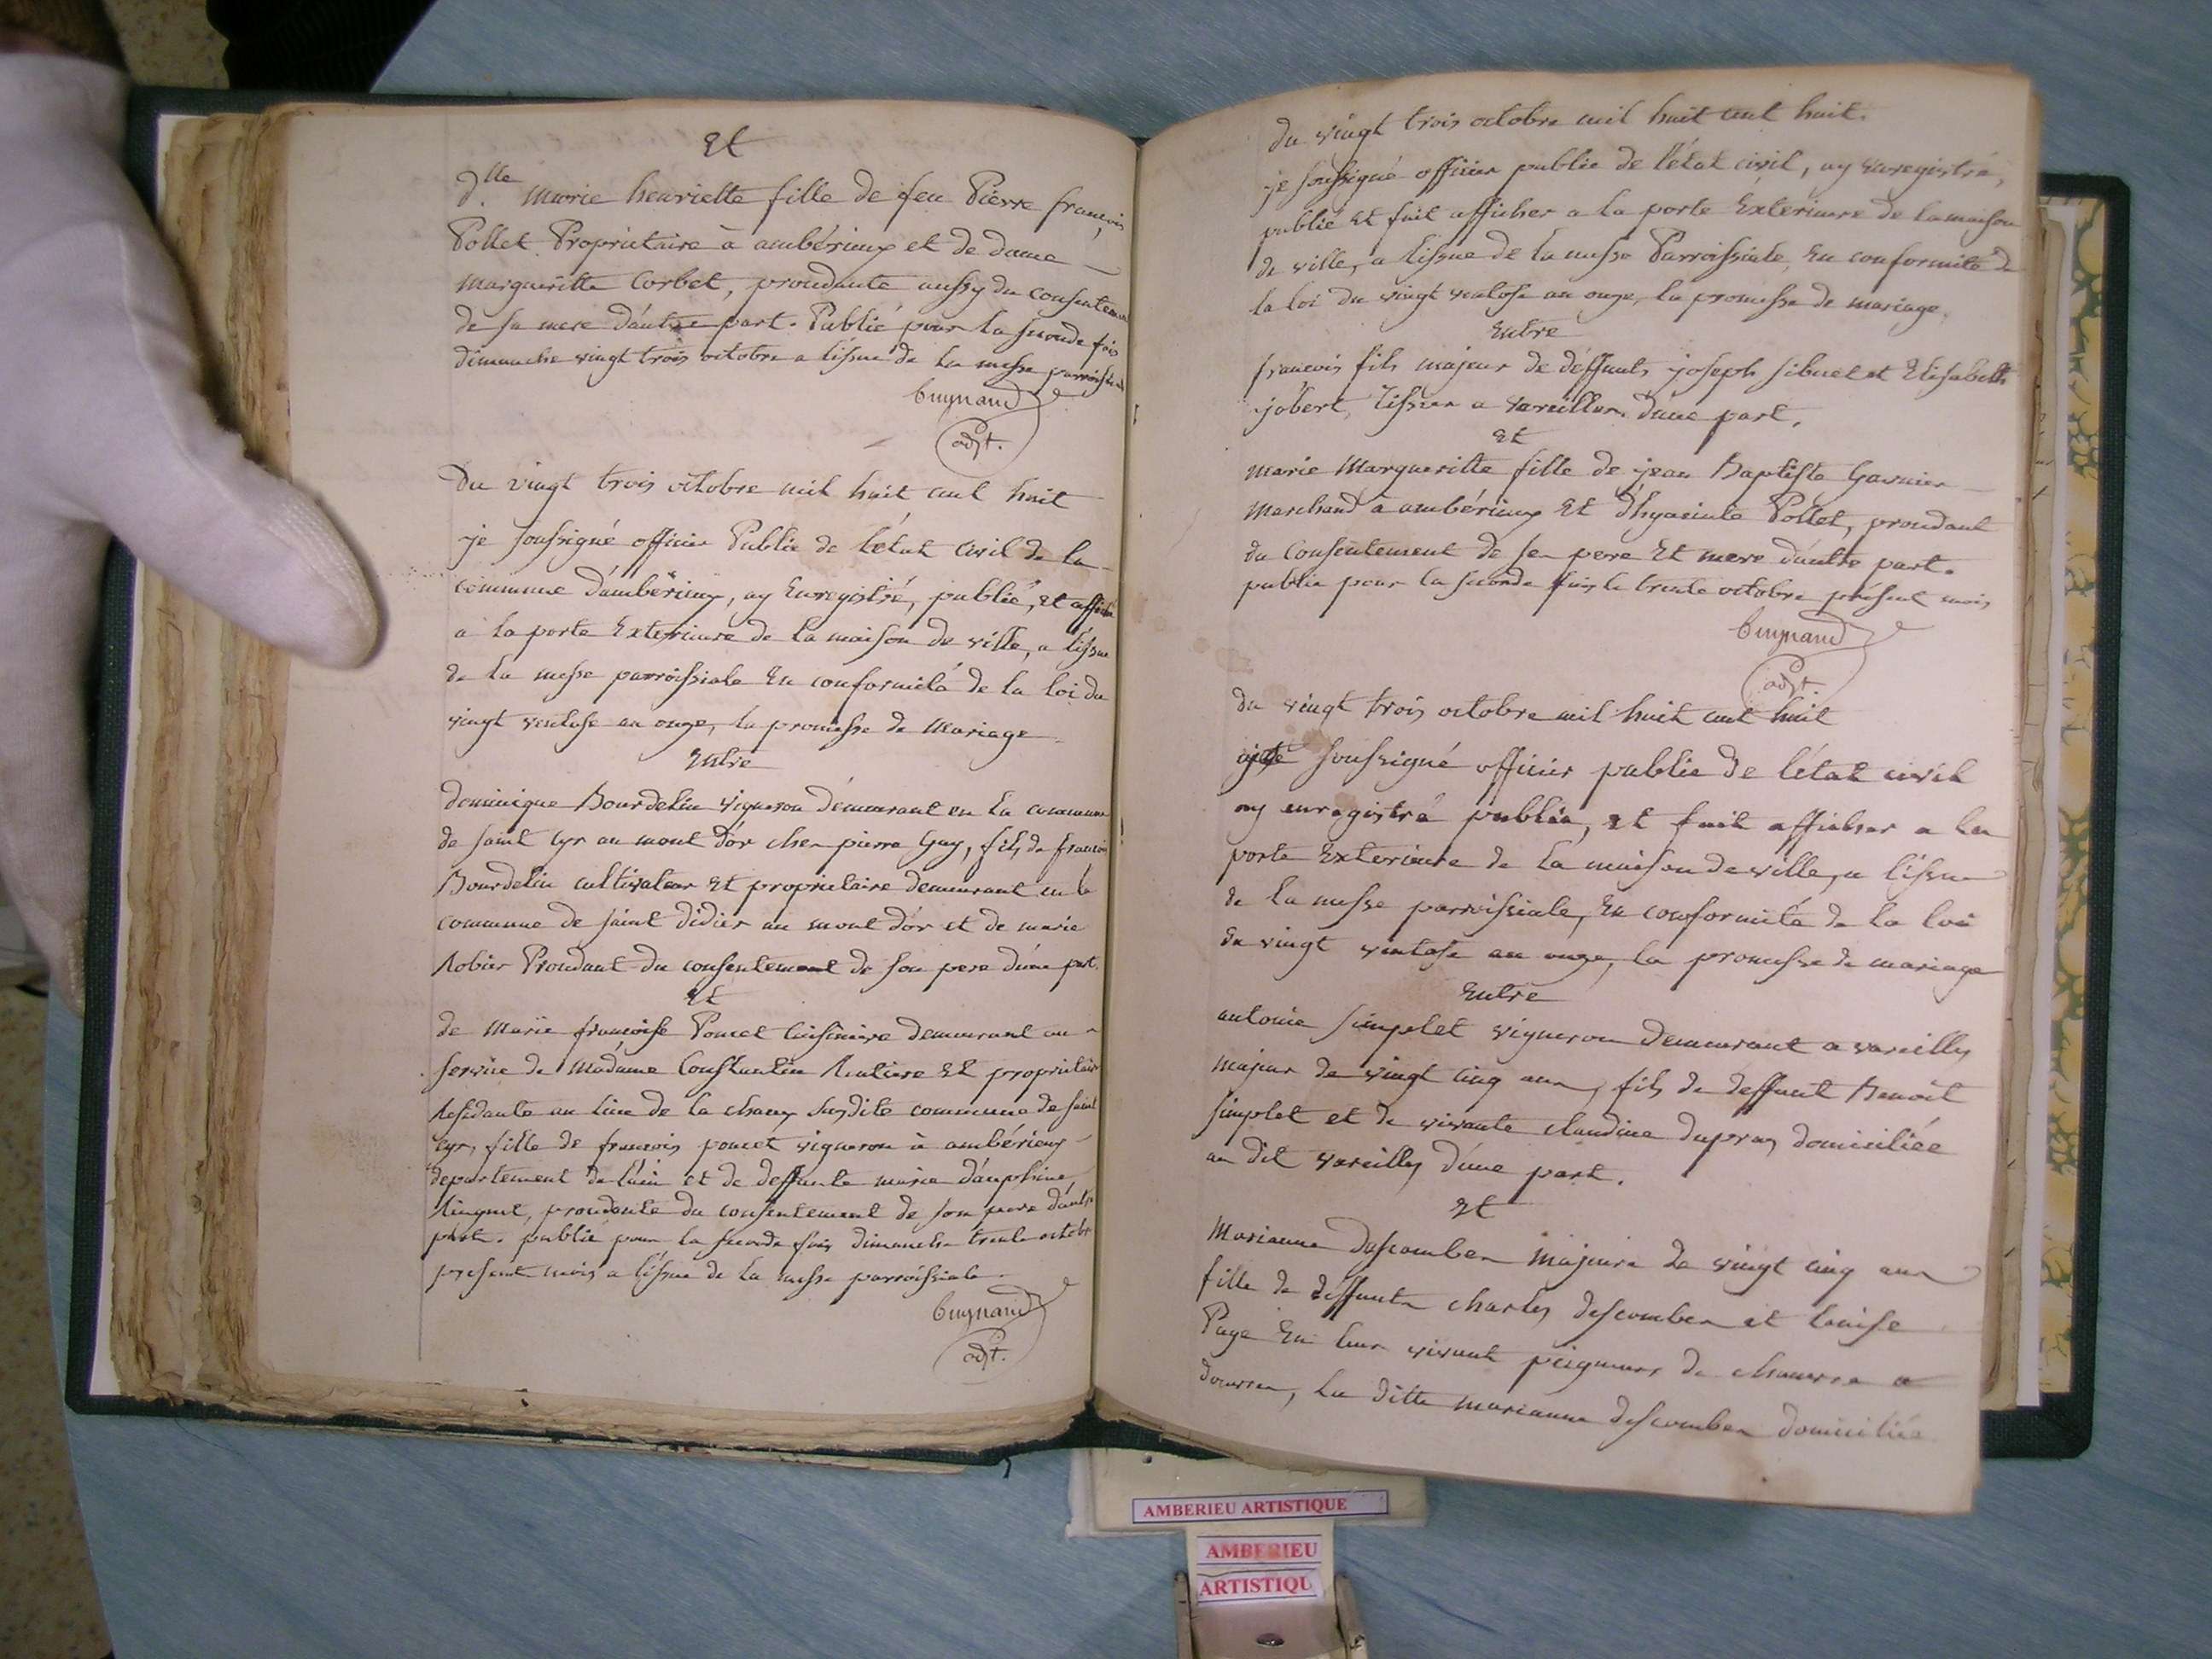 Et
d.lle marie henriette fille de feu Pierre françois
Pollet Proprietaire à ambérieux et de dame
margueritte Corbet, procedante aussy du consentement
de sa mere d'autre part. Publié pour la seconde fois
dimanche vingt trois octobre a l'issue de la messe parroissiale
Bugnand
adjt.
Du vingt trois octobre mil huit cent huit
je soussigné officier Public de l'état Civil de la
commune d'ambérieux, ay Enregistré, publié, et affiché
a la porte Exterieure de la maison de ville, a l'issue
de la messe parroissiale En conformité de la loi du
vingt ventose an onze, la promesse de mariage
Entre
dominique Bourdelin vigneron demeurant en la commune
de saint Cyr au mont d'or chez pierre Guy, fils de francois
Bourdelin cultivateur et proprietaire demeurant en la
commune de saint didier au mont d'or et de marie
Robier Procédant du consentement de son pere d'une part.
Et
de Marie françoise Poncet Cuisiniere demeurant au
service de Madame Constantin Rentiere et propriétaire
Résidante au lieu de la chaux susdite commune de saint
Cyr, fille de francois poncet vigneron à ambérieux
departement de l'ain et de deffunte marie dauphine
procédante du consentement de son pere d'autre
part. publié pour la seconde fois dimanche trente octobre
présent mois a l'issue de la messe parroissiale.
Bugnand
adjt.
du vingt trois octobre mil huit cent huit.
je soussigné officier public de l'état civil, ay enregistré,
publié et fait afficher a la porte Exterieure de la maison
de ville, a l'issue de la messe Parroissiale, En conformité de
la loi du vingt ventose an onze, la promesse de mariage.
Entre
francois fils majeur de deffunts joseph sibuet et Elisabeth
jobert, tissier a vareilles. d'une part.
et
marie Margueritte fille de jean Baptiste Garnier
marchand à ambérieux et d'hyacinte Pollet, procédant
du Consentement de ses pere et mere d'autre part.
publié pour la seconde fois le trente octobre présent mois
Bugnand
adjt.
du vingt trois octobre mil huit cent huit
je soussigné officier public de l'état civil
ay enregistré publié, et fait afficher a la
porte Exterieure de la maison de ville, a l'issue
de la messe parroissiale, En conformité de la loi
du vingt ventose an onze, la promesse de mariage
Entre
antoine simplet vigneron demeurant a vareilles
majeur de vingt cinq ans, fils de deffunt Benoit
simplet et de vivante claudine dupras domiciliée
au dit vareilles d'une part.
et
Marianne descombes majeure de vingt cinq ans
fille de deffunts charles descombes et louise
Page En leur vivant peigneurs de chanvre a
douvres, la ditte marianne descombes domiciliée
AMBERIEU ARTISTIQUE
AMBERIEU
ARTISTIQU